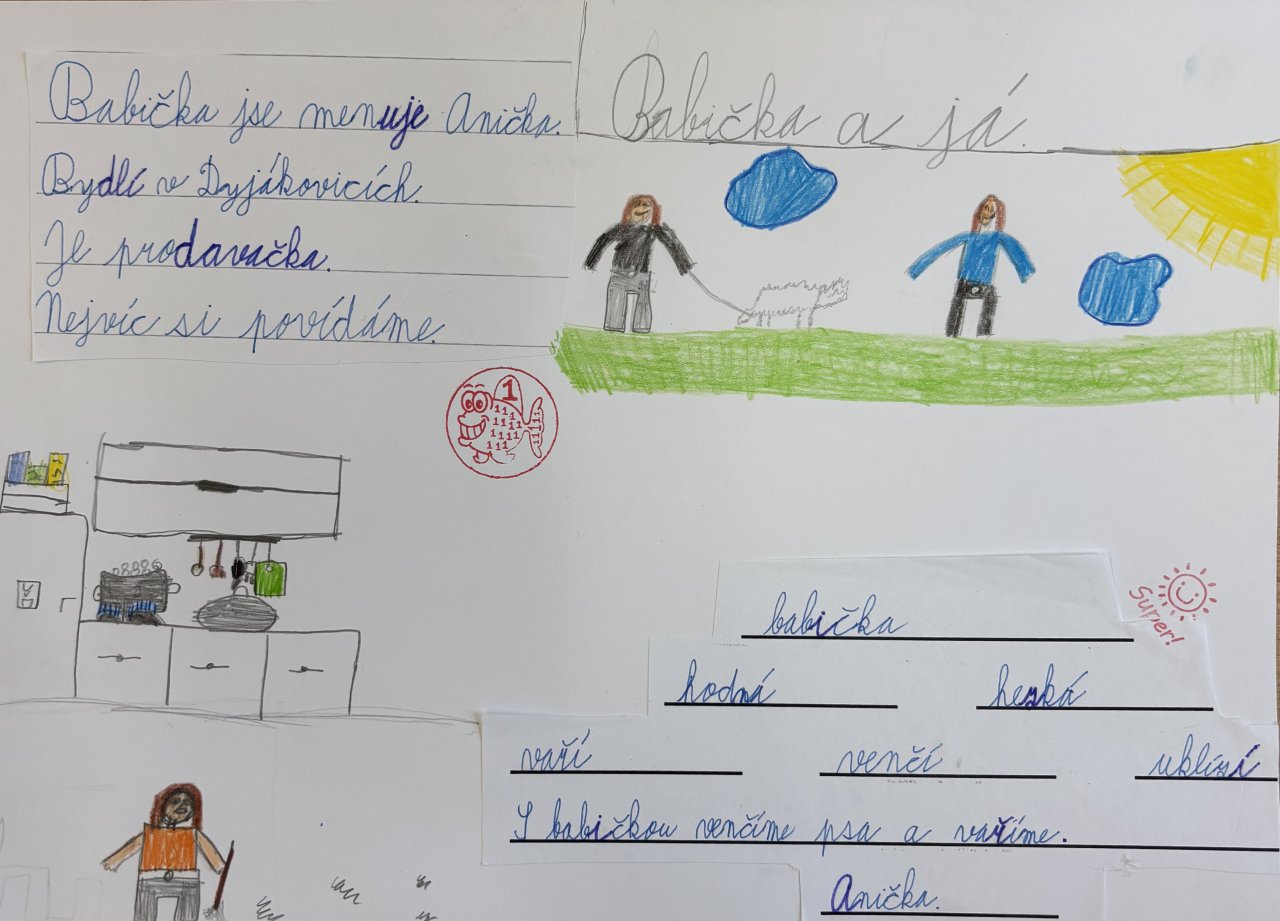 Babička jse menuje Anička.
Bydlí v Dyjákovicích.
Je prodavačka.
Nejvíc si povídáme.
Babička a já.
1
Super!
babička
hodná hezká
vaří venčí uklízí
S babičkou venčíme psa a vaříme.
Anička.